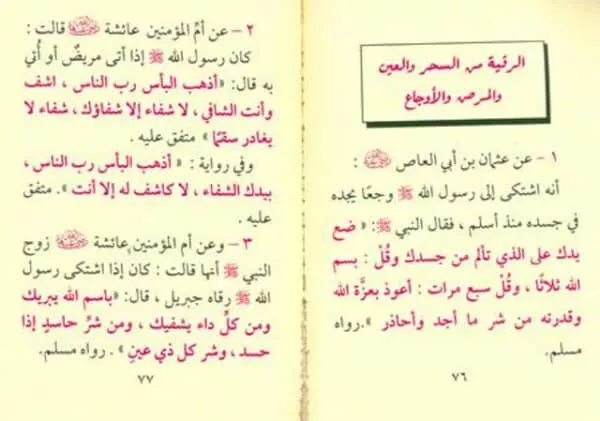 الرقية من السحر والعين
والمرض والأوجاع
١ – عن عثمان بن أبي العاص رضي الله عنه :
أنه اشتكى إلى رسول الله ﷺ وجعًا يجده
في جسده منذ أسلم ، فقال النبي ﷺ: « ضع
يدك على الذي تألم من جسدك وقُلْ : بسم
الله ثلاثًا ، وقُلْ سبع مرات : أعوذ بعزَّة الله
وقدرته من شر ما أجد وأحاذر ».رواه
مسلم.
٧٦
٢ – عن أمِّ المؤمنين عائشة رضي الله عنها قالت :
كان رسول الله ﷺ إذا أتى مريضٌ أو أُتي
به قال: «أذهب البأس رب الناس ، اشف
وأنت الشافي ، لا شفاء إلا شفاؤك ، شفاء لا
يغادر سقمًا » متفق عليه .
وفي رواية : « أذهب البأس رب الناس ،
بيدك الشفاء ، لا كاشف له إلا أنت ». متفق
عليه .
٣ – وعن أم المؤمنين عائشة رضي الله عنها زوج
النبي ﷺ أنها قالت : كان إذا اشتكى رسول
الله ﷺ رقاه جبريل ، قال: «باسم الله يبريك
ومن كلِّ داء يشفيك ، ومن شرِّ حاسدٍ إذا
حسد ، وشر كل ذي عينٍ » . رواه مسلم.
٧٧